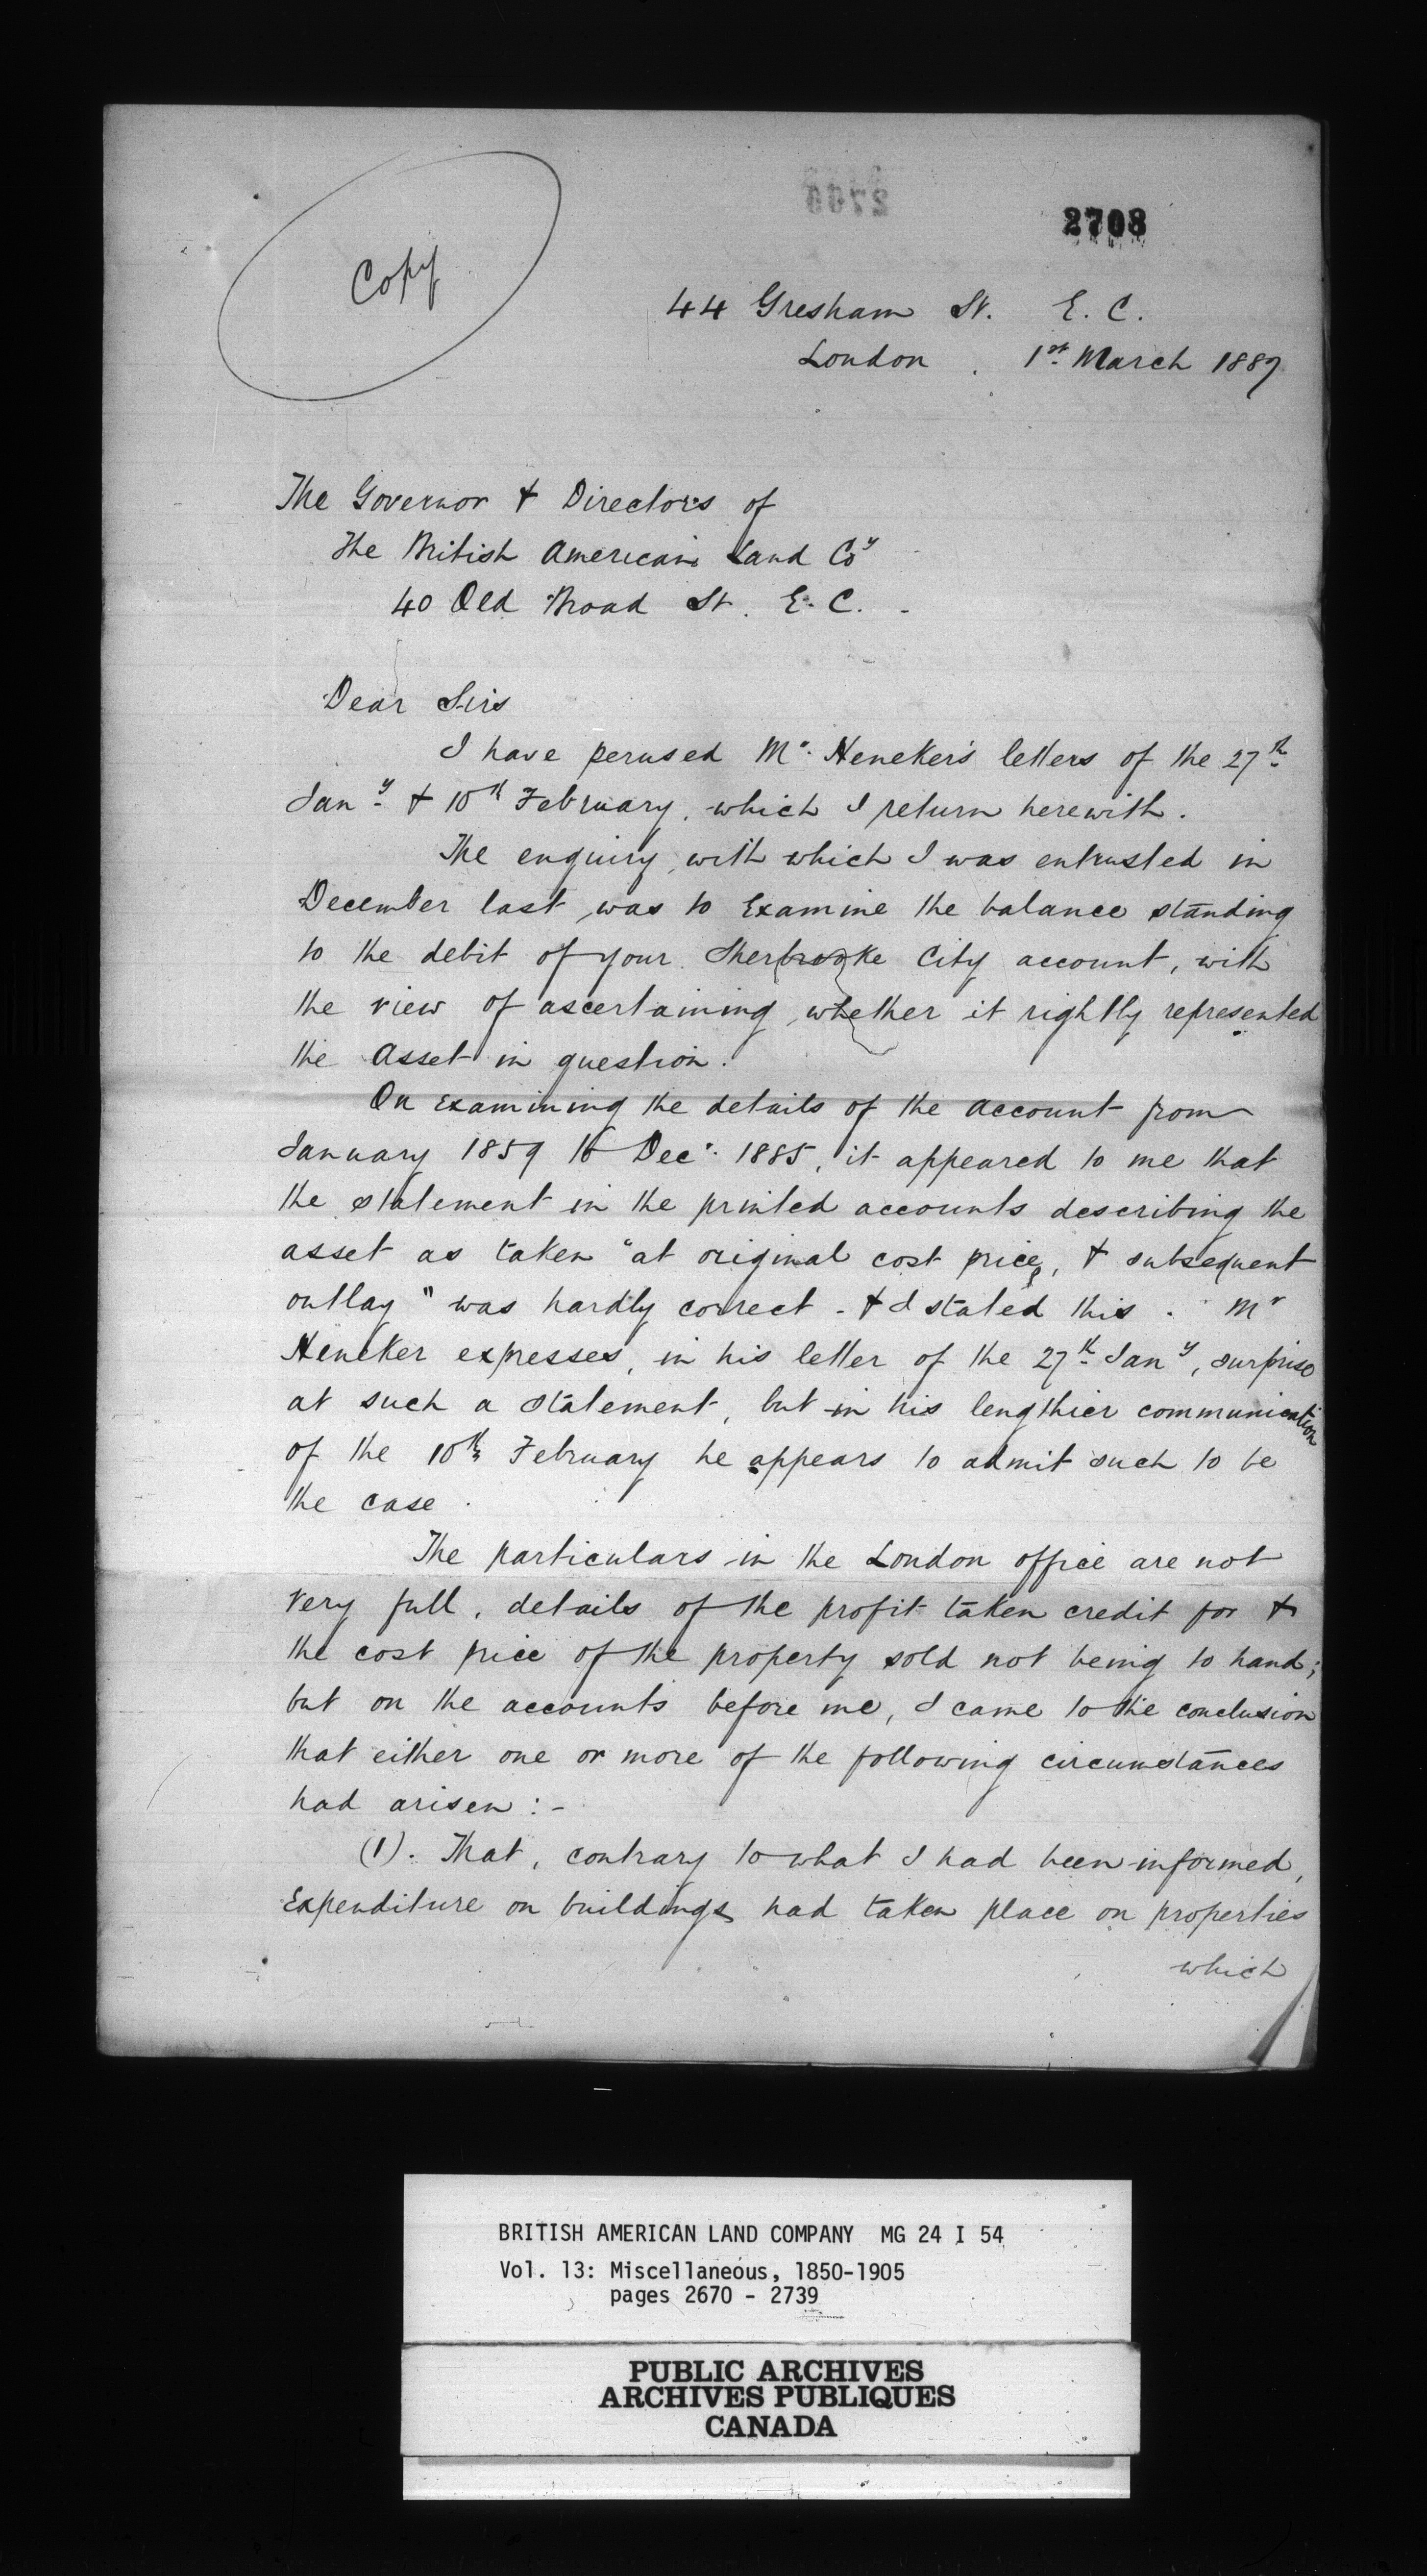 2708
Copy
44 Gresham St. E. C.
London. 1st March 1887
The Governor & Directors of
The British American Land Coy
40 Old Broad St. E. C.
Dear Sirs
I have perused Mr. Heneker's letters of the 27th
Jany & 10th February, which I return herewith.
The enquiry, with which I was entrusted in
December last, was to Examine the balance standing
to the debit of your Sherbrooke City account, with
the view of ascertaining, whether it rightly represented
the Asset in question.
On Examining the details of the Account from
January 1859 to Decr. 1885, it appeared to me that
the statement in the printed accounts describing the
asset as taken "at original cost price, & subsequent
outlay" was hardly correct - & I stated this. Mr
Heneker expresses, in his letter of the 27th Jany, surprise
at such a statement, but in his lengthier communication
of the 10th February he appears to admit such to be
the case.
The particulars in the London office are not
very full, details of the profit taken credit for &
the cost price of the property sold not being to hand;
but on the accounts before me, I came to the conclusion
that either one or more of the following circumstances
had arisen:-
(1). That, contrary to what I had been informed,
Expenditure on buildings had taken place on properties
which
BRITISH AMERICAN LAND COMPANY MG 24 I 54
Vol. 13: Miscellaneous, 1850-1905
pages 2670 - 2739
PUBLIC ARCHIVES
ARCHIVES PUBLIQUES
CANADA